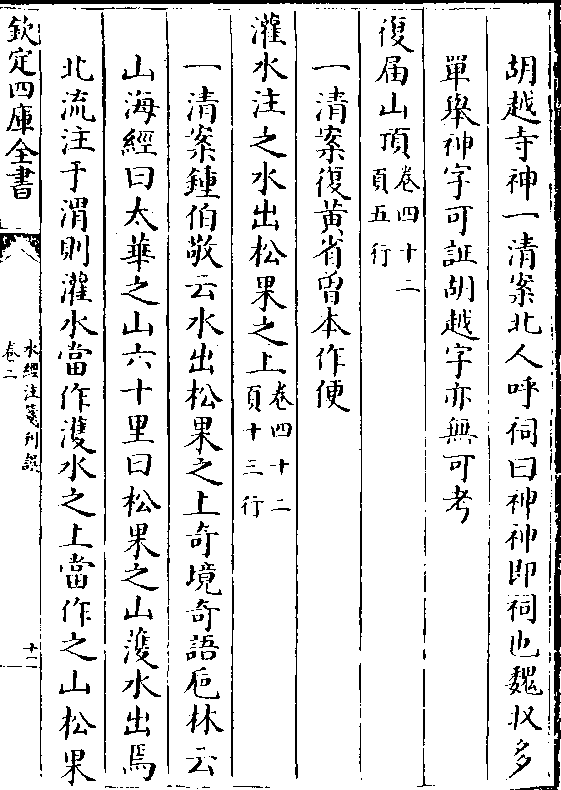 胡越寺神一清案北人呼祠曰神神即祠也魏收多
單舉神字可証胡越字亦無可考
復届山頂卷四十二頁五行
一清案復黃省曾本作便
灌水注之水出松果之上卷四十二頁十三行
一清案鍾伯敬云水出松果之上奇境奇語巵林云
山海經曰太華之山六十里曰松果之山濩水出焉
北流注于渭則灌水當作濩水之上當作之山松果
欽定四庫全書
水經注箋刊誤
卷二
十一